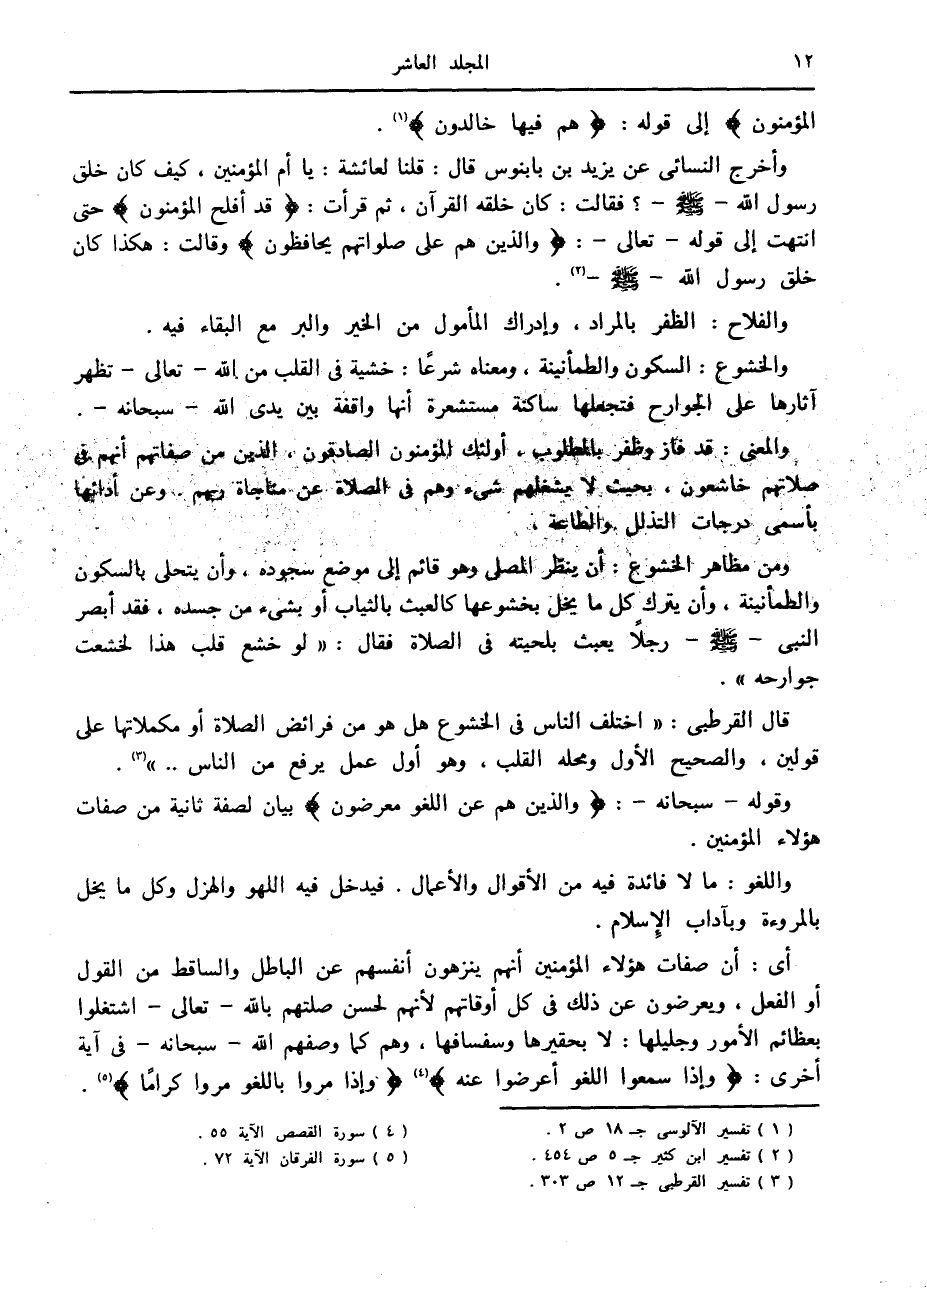 ١٢
المجلد العاشر
المؤمنون ﴾ إلى قوله : ﴿ هم فيها خالدون ﴾(١) .
وأخرج النسائى عن يزيد بن بابنوس قال : قلنا لعائشة : يا أم المؤمنين ، كيف كان خلق
رسول الله – ﷺ – ؟ فقالت : كان خلقه القرآن ، ثم قرأت : ﴿ قد أفلح المؤمنون ﴾ حتى
انتهت إلى قوله – تعالى – : ﴿ والذين هم على صلواتهم يحافظون ﴾ وقالت : هكذا كان
خلق رسول الله – ﷺ –(٢) .
والفلاح : الظفر بالمراد ، وإدراك المأمول من الخير والبر مع البقاء فيه .
والخشوع : السكون والطمأنينة ، ومعناه شرعًا : خشية فى القلب من الله – تعالى – تظهر
آثارها على الجوارح فتجعلها ساكنة مستشعرة أنها واقفة بين يدى الله – سبحانه – .
والمعنى : قد فاز وظفر بالمطلوب ، أولئك المؤمنون الصادقون ، الذين من صفاتهم أنهم فى
صلاتهم خاشعون ، بحيث لا يشغلهم شىء وهم فى الصلاة عن مناجاة ربهم . وعن أدائها
بأسمى درجات التذلل والطاعة .
ومن مظاهر الخشوع : أن ينظر المصلى وهو قائم إلى موضع سجوده ، وأن يتحلى بالسكون
والطمأنينة ، وأن يترك كل ما يخل بخشوعها كالعبث بالثياب أو بشىء من جسده ، فقد أبصر
النبى – ﷺ – رجلًا يعبث بلحيته فى الصلاة فقال : « لو خشع قلب هذا لخشعت
جوارحه » .
قال القرطبى : « اختلف الناس فى الخشوع هل هو من فرائض الصلاة أو مكملاتها على
قولين ، والصحيح الأول ومحله القلب ، وهو أول عمل يرفع من الناس .. »(٣) .
وقوله – سبحانه – : ﴿ والذين هم عن اللغو معرضون ﴾ بيان لصفة ثانية من صفات
هؤلاء المؤمنين .
واللغو : ما لا فائدة فيه من الأقوال والأعمال . فيدخل فيه اللهو والهزل وكل ما يخل
بالمروءة وبآداب الإسلام .
أى : أن صفات هؤلاء المؤمنين أنهم ينزهون أنفسهم عن الباطل والساقط من القول
أو الفعل ، ويعرضون عن ذلك فى كل أوقاتهم لأنهم لحسن صلتهم بالله – تعالى – اشتغلوا
بعظائم الأمور وجليلها : لا بحقيرها وسفسافها ، وهم كما وصفهم الله – سبحانه – فى آية
أخرى : ﴿ وإذا سمعوا اللغو أعرضوا عنه ﴾(٤) ﴿ وإذا مروا باللغو مروا كرامًا ﴾(٥) .
( ١ ) تفسير الآلوسى جـ ١٨ ص ٢ .
( ٢ ) تفسير ابن كثير جـ ٥ ص ٤٥٤ .
( ٣ ) تفسير القرطبى جـ ١٢ ص ٣٠٣ .
( ٤ ) سورة القصص الآية ٥٥ .
( ٥ ) سورة الفرقان الآية ٧٢ .